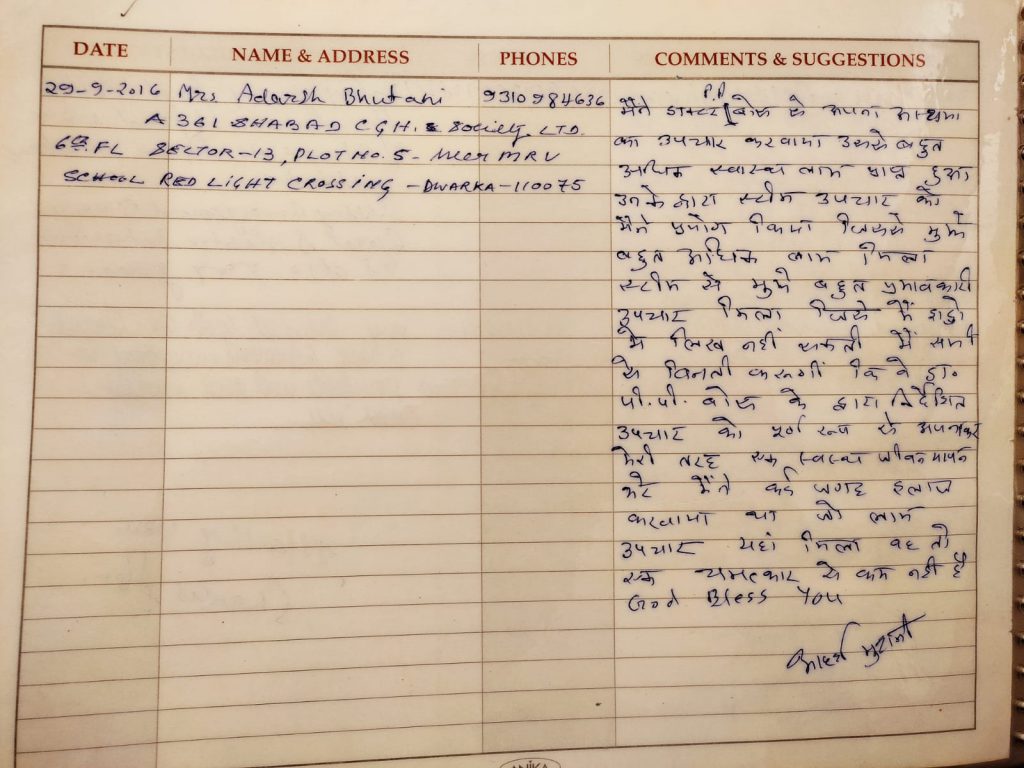 DATE NAME & ADDRESS PHONES COMMENTS & SUGGESTIONS
29-9-2016 Mrs Adarsh Bhutani 9310984636
A 361 SHABAD C.G.H. Society. LTD.
6th FL SECTOR-13, PLOT NO. 5 - Near MRV
SCHOOL RED LIGHT CROSSING - DWARKA-110075
P.P
मैंने डाक्टर बोस से अपना अस्थमा
का उपचार करवाया उससे बहुत
अधिक स्वास्थ्य लाभ प्राप्त हुआ
उनके द्वारा स्टीम उपचार को
मैंने प्रयोग किया जिससे मुझे
बहुत अधिक लाभ मिला
स्टीम से मुझे बहुत प्रभावकारी
उपचार मिला जिसे मैं शब्दो
मे लिख नहीं सकती मैं सभी
से विनती करूगीं कि वे डा०
पी.पी. बोस के द्वारा निर्देशित
उपचार को पूर्ण रूप से अपनाकर
मेरी तरह एक स्वस्थ्य जीवन यापन
करे मैंने कई जगह इलाज
करवाया था जो लाभ
उपचार यहां मिला वह तो
एक चमत्कार से कम नहीं है
God Bless You
आदर्श भुटानी
ANIKA